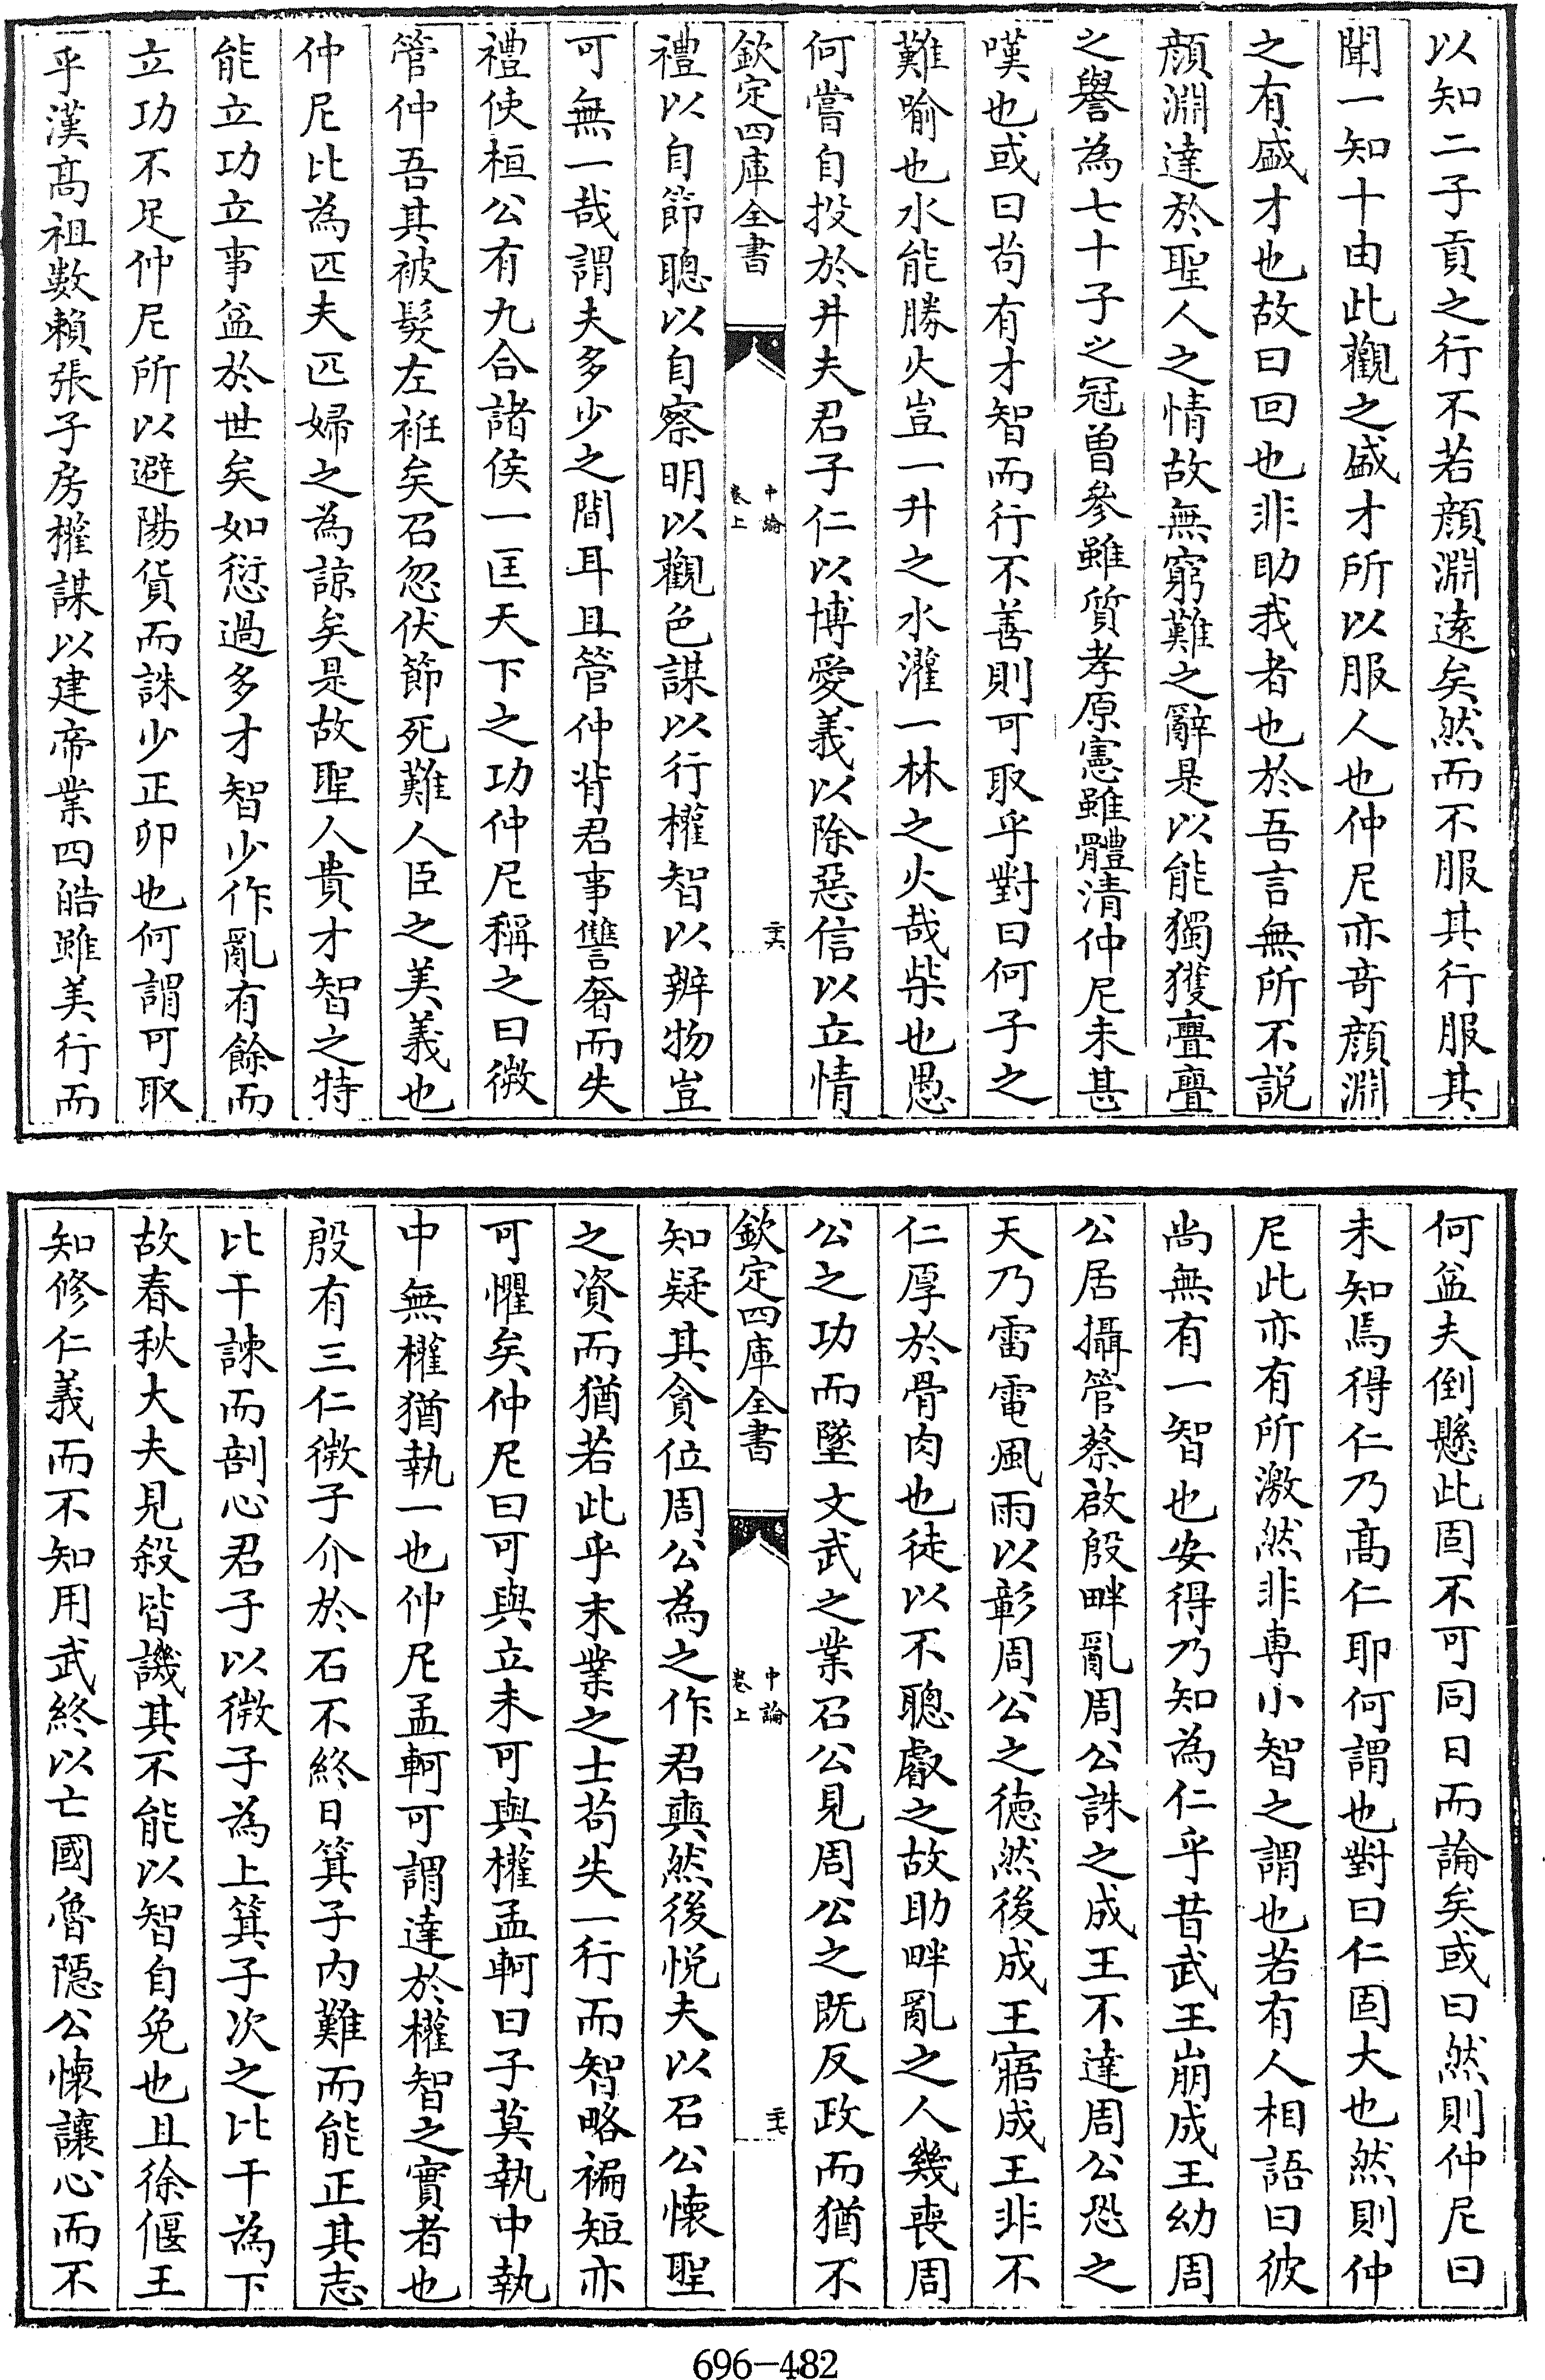 以知二子貢之行不若顔淵逺矣然而不服其行服其
聞一知十由此觀之盛才所以服人也仲尼亦竒顔淵
之有盛才也故曰回也非助我者也於吾言無所不説
顔淵達於聖人之情故無窮難之辭是以能獨獲亹亹
之譽為七十子之冠曾參雖質孝原憲雖體清仲尼未甚
嘆也或曰茍有才智而行不善則可取乎對曰何子之
難喻也水能勝火豈一升之水灌一林之火哉柴也愚
何嘗自投於井夫君子仁以博愛義以除惡信以立情
欽定四庫全書
中論
卷上
二十六
禮以自節聰以自察明以觀色謀以行權智以辨物豈
可無一哉謂夫多少之間耳且管仲背君事讐奢而失
禮使桓公有九合諸侯一匡天下之功仲尼稱之曰微
管仲吾其被髮左袵矣召忽伏節死難人臣之美義也
仲尼比為匹夫匹婦之為諒矣是故聖人貴才智之特
能立功立事益於世矣如愆過多才智少作亂有餘而
立功不足仲尼所以避陽貨而誅少正卯也何謂可取
乎漢髙祖數賴張子房權謀以建帝業四皓雖美行而
何益夫倒懸此固不可同日而論矣或曰然則仲尼曰
未知焉得仁乃髙仁耶何謂也對曰仁固大也然則仲
尼此亦有所激然非専小智之謂也若有人相語曰彼
尚無有一智也安得乃知為仁乎昔武王崩成王幼周
公居攝管蔡啟殷畔亂周公誅之成王不達周公恐之
天乃雷電風雨以彰周公之徳然後成王寤成王非不
仁厚於骨肉也徒以不聰叡之故助畔亂之人幾喪周
公之功而墜文武之業召公見周公之既反政而猶不
欽定四庫全書
中論
卷上
二十七
知疑其貪位周公為之作君奭然後悦夫以召公懐聖
之資而猶若此乎末業之士茍失一行而智略褊短亦
可懼矣仲尼曰可與立未可與權孟軻曰子莫執中執
中無權猶執一也仲尼孟軻可謂達於權智之實者也
殷有三仁微子介於石不終日箕子内難而能正其志
比干諫而剖心君子以微子為上箕子次之比干為下
故春秋大夫見殺皆譏其不能以智自免也且徐偃王
知修仁義而不知用武終以亡國魯隱公懐讓心而不
696-482